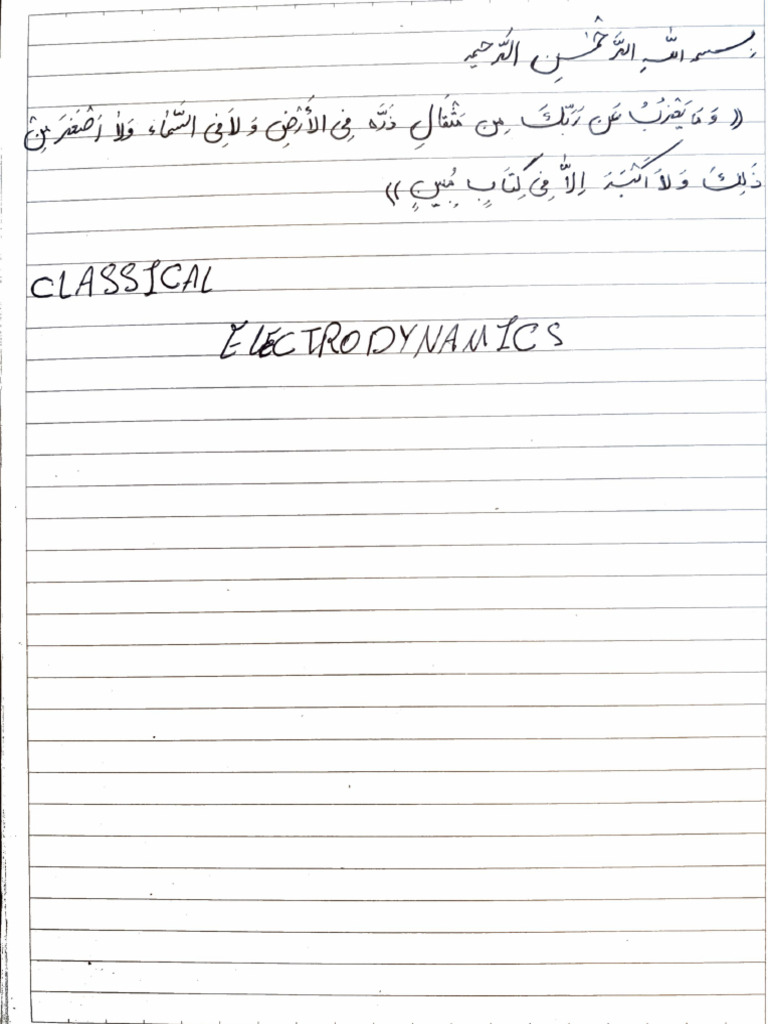 بسم الله الرَّحْمٰنِ الرَّحيم
(( وَ مَا يَعْزُبُ عَن رَبِّكَ مِن مِثْقَالِ ذَرَّه فِی الأَرْضِ وَ لاَ فِی السَّمَاء وَلاَ اَصْغَرَ مِنْ
ذَلِكَ وَ لاَ اَكْبَرَ اِلاَّ فِی كِتَابٍ مُبِینٍ ))
CLASSICAL
ELECTRODYNAMICS